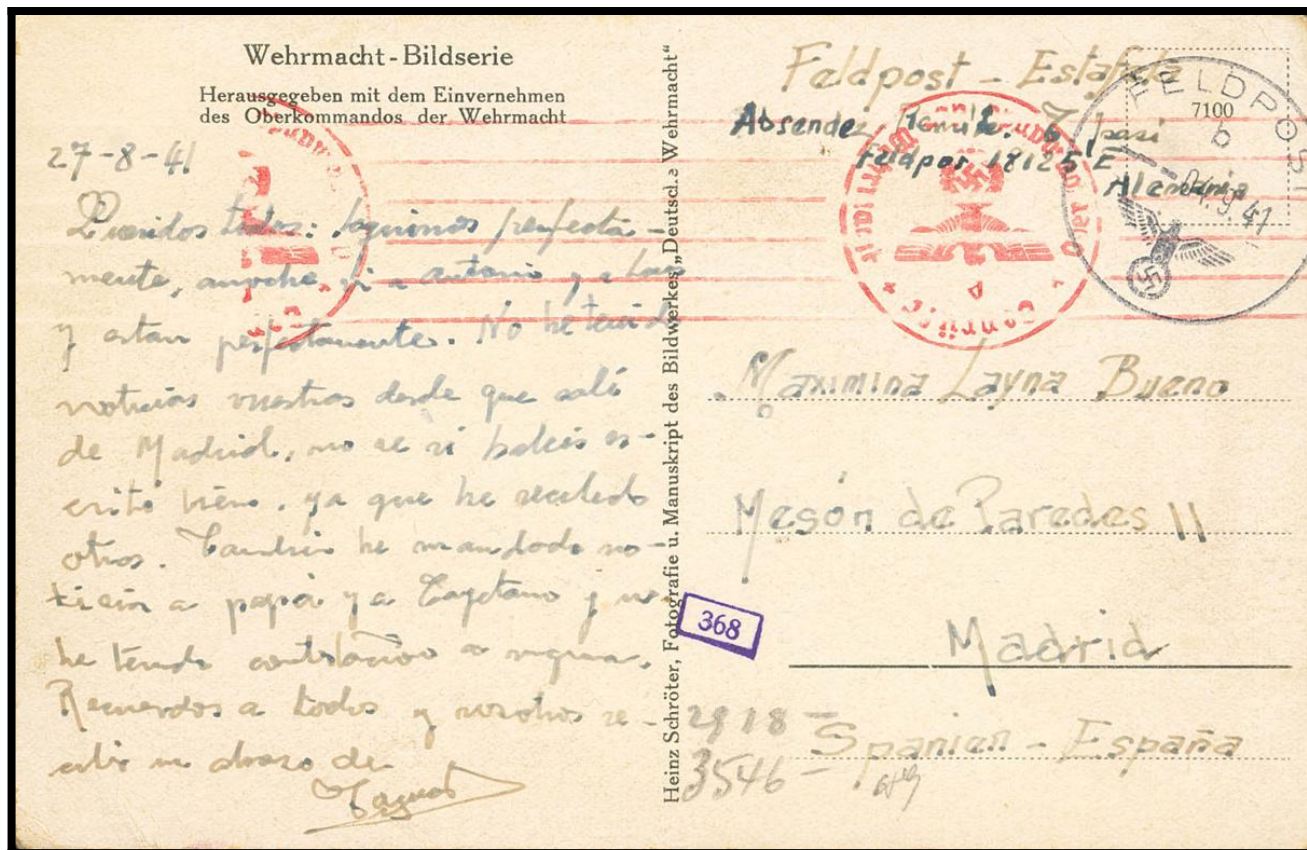 Wehrmacht-Bildserie
Herausgegeben mit dem Einvernehmen
des Oberkommandos der Wehrmacht
27-8-41
Queridos todos: seguimos perfecta-
mente, anoche vi a Antonio y a
y estan perfectamente. No he tenido
noticias vuestras desde que salí
de Madrid, no se si habeis es-
crito bien, ya que he recibido
otros. Tambien he mandado no-
ticias a papá y a Cayetano y no
he tenido contestacion a ninguna.
Recuerdos a todos y vosotros re-
cibir un abrazo de
Heinz Schröter, Fotografie u. Manuskript des Bildwerkes „Deutsche Wehrmacht“
Feldpost - Estafeta
Absender
Feldpos. 18125 E
Alemania
FELDPOST
7100
b
04.9.41
A
Maximina Layna Bueno
Mesón de Paredes 11
Madrid
Spanien - España
368
2918 -
3546 -